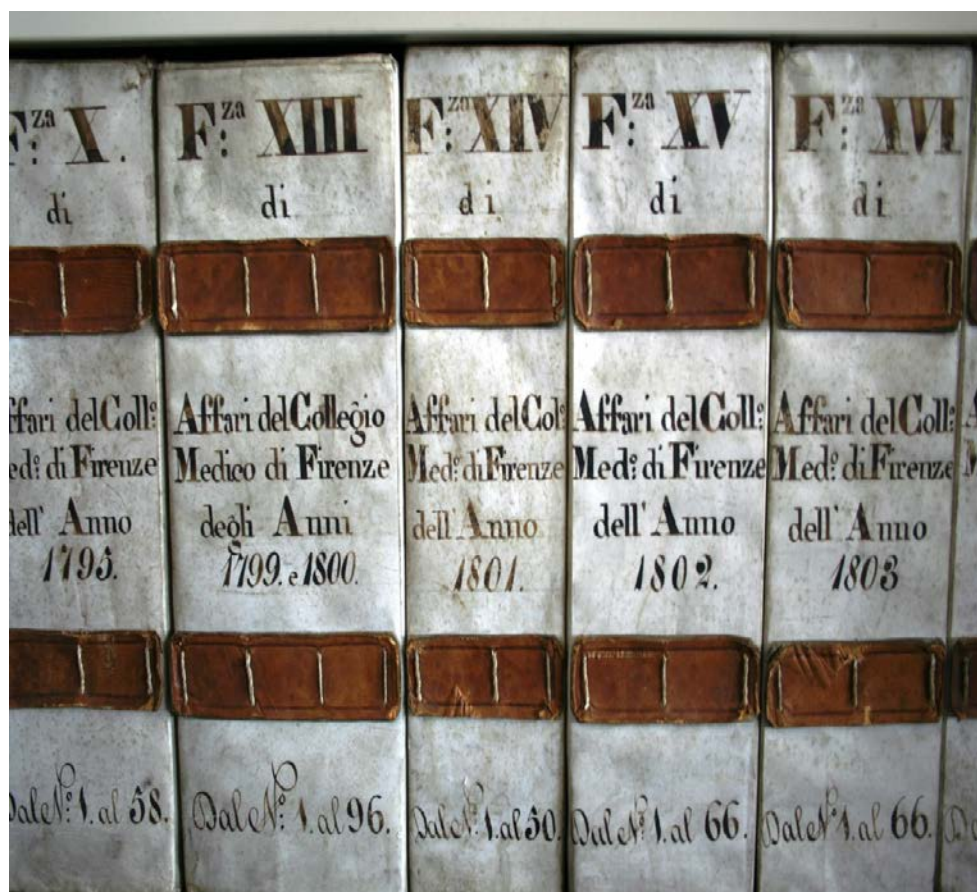 F:za X.
di
ffari del Coll:o
ed:o di Firenze
dell' Anno
1795.
Dal N:o 1. al 58.
F:za XIII
di
Affari del Collegio
Medico di Firenze
degli Anni
1799. e 1800.
Dal N:o 1. al 96.
F:za XIV
di
Affari del Col:o
Med:o di Firenze
dell' Anno
1801.
Dal N:o 1. al 50.
F:za XV
di
Affari del Coll:o
Med:o di Firenze
dell' Anno
1802.
Dal N:o 1. al 66.
F:za XVI
di
Affari del Coll:o
Med:o di Firenze
dell' Anno
1803
Dal N:o 1. al 66.